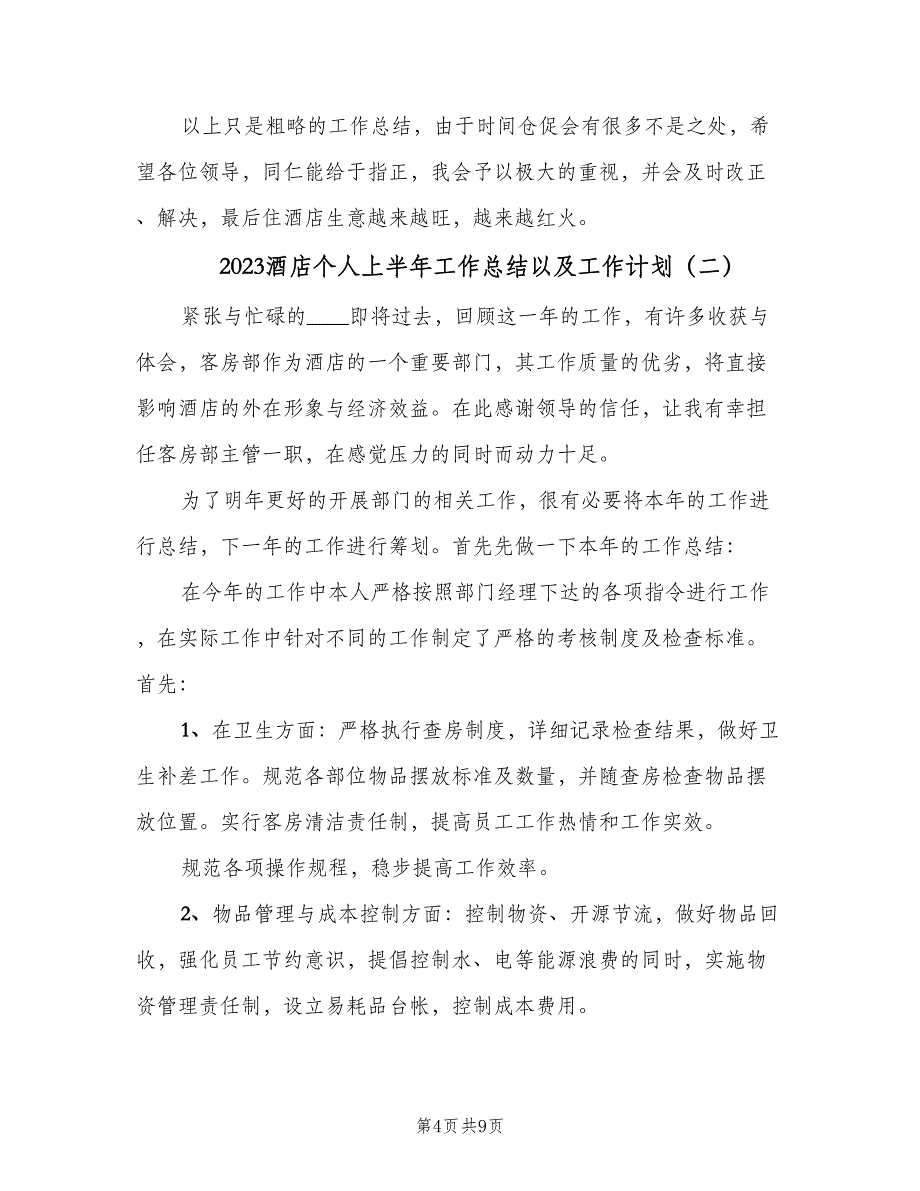 以上只是粗略的工作总结，由于时间仓促会有很多不是之处，希
望各位领导，同仁能给于指正，我会予以极大的重视，并会及时改正
、解决，最后住酒店生意越来越旺，越来越红火。
2023酒店个人上半年工作总结以及工作计划（二）
紧张与忙碌的____即将过去，回顾这一年的工作，有许多收获与
体会，客房部作为酒店的一个重要部门，其工作质量的优劣，将直接
影响酒店的外在形象与经济效益。在此感谢领导的信任，让我有幸担
任客房部主管一职，在感觉压力的同时而动力十足。
为了明年更好的开展部门的相关工作，很有必要将本年的工作进
行总结，下一年的工作进行筹划。首先先做一下本年的工作总结：
在今年的工作中本人严格按照部门经理下达的各项指令进行工作
，在实际工作中针对不同的工作制定了严格的考核制度及检查标准。
首先：
1、在卫生方面：严格执行查房制度，详细记录检查结果，做好卫
生补差工作。规范各部位物品摆放标准及数量，并随查房检查物品摆
放位置。实行客房清洁责任制，提高员工工作热情和工作实效。
规范各项操作规程，稳步提高工作效率。
2、物品管理与成本控制方面：控制物资、开源节流，做好物品回
收，强化员工节约意识，提倡控制水、电等能源浪费的同时，实施物
资管理责任制，设立易耗品台帐，控制成本费用。
第4页 共9页